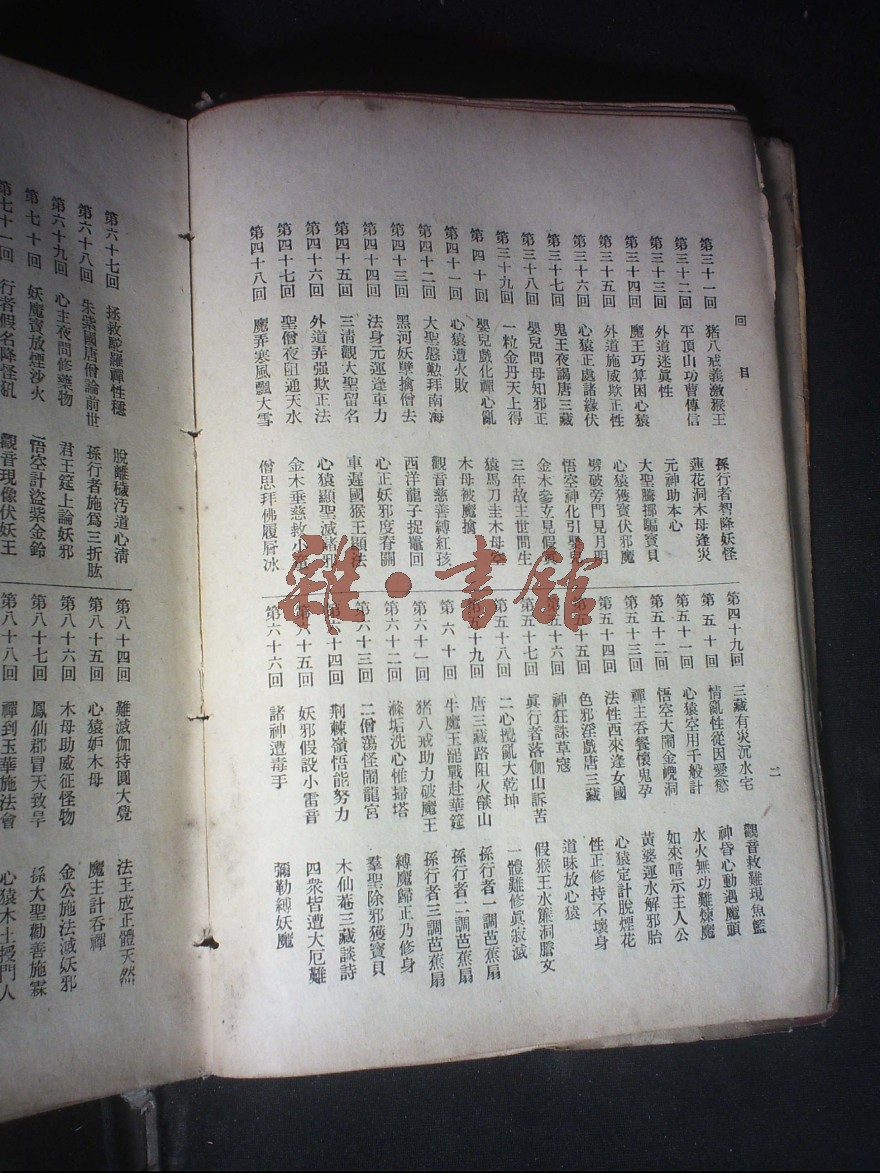 回目
第三十一回 猪八戒義激猴王 孫行者智降妖怪
第三十二回 平頂山功曹傳信 蓮花洞木母逢災
第三十三回 外道迷眞性 元神助本心
第三十四回 魔王巧算困心猿 大聖騰挪騙寶貝
第三十五回 外道施威欺正性 心猿獲寶伏邪魔
第三十六回 心猿正處諸緣伏 劈破旁門見月明
第三十七回 鬼王夜謁唐三藏 悟空神化引嬰
第三十八回 嬰兒問母知邪正 金木參玄見假眞
第三十九回 一粒金丹天上得 三年故主世間生
第四十回 嬰兒戲化禪心亂 猿馬刀圭木母空
第四十一回 心猿遭火敗 木母被魔擒
第四十二回 大聖慇勤拜南海 觀音慈善縛紅孩
第四十三回 黑河妖孽擒僧去 西洋龍子捉鼉回
第四十四回 法身元運逢車力 心正妖邪度脊關
第四十五回 三清觀大聖留名 車遲國猴王顯法
第四十六回 外道弄强欺正法 心猿顯聖滅諸邪
第四十七回 聖僧夜阻通天水 金木垂慈救小
第四十八回 魔弄寒風飄大雪 僧思拜佛履層冰
第四十九回 三藏有災沉水宅 觀音救難現魚籃
第五十回 情亂性從因愛慾 神昏心動遇魔頭
第五十一回 心猿空用千般計 水火無功難煉魔
第五十二回 悟空大鬧金㠋洞 如來暗示主人公
第五十三回 禪主吞餐懷鬼孕 黃婆運水解邪胎
第五十四回 法性西來逢女國 心猿定計脫煙花
第五十五回 色邪淫戲唐三藏 性正修持不壞身
第五十六回 神狂誅草寇 道昧放心猿
第五十七回 眞行者落伽山訴苦 假猴王水簾洞謄文
第五十八回 二心攪亂大乾坤 一體難修眞寂滅
第五十九回 唐三藏路阻火燄山 孫行者一調芭蕉扇
第六十回 牛魔王罷戰赴華筵 孫行者二調芭蕉扇
第六十一回 猪八戒助力破魔王 孫行者三調芭蕉扇
第六十二回 滌垢洗心惟掃塔 縛魔歸正乃修身
第六十三回 二僧蕩怪鬧龍宮 羣聖除邪獲寶貝
第六十四回 荆棘嶺悟能努力 木仙菴三藏談詩
第六十五回 妖邪假設小雷音 四衆皆遭大厄難
第六十六回 諸神遭毒手 彌勒縛妖魔
二
第六十七回 拯救駝羅禪性穩 脫離穢污道心清
第六十八回 朱紫國唐僧論前世 孫行者施爲三折肱
第六十九回 心主夜間修藥物 君王筵上論妖邪
第七十回 妖魔寶放煙沙火 悟空計盜紫金鈴
第七十一回 行者假名降怪犼 觀音現像伏妖王
第八十四回 難滅伽持圓大覺 法王成正體天然
第八十五回 心猿妒木母 魔主計吞禪
第八十六回 木母助威征怪物 金公施法滅妖邪
第八十七回 鳳仙郡冒天致旱 孫大聖勸善施霖
第八十八回 禪到玉華施法會 心猿木土授門人
雜·書館